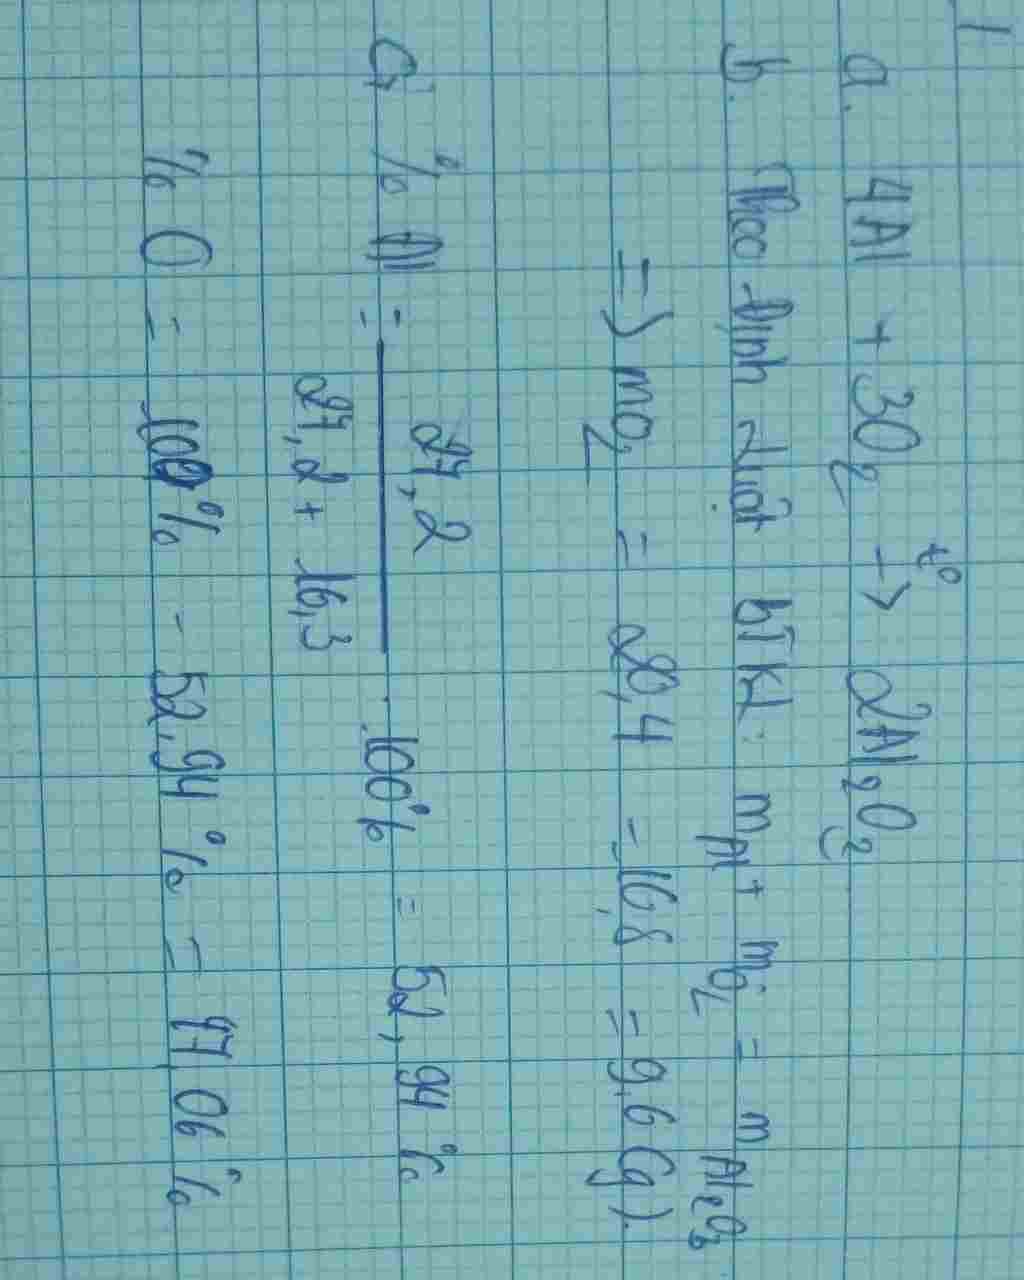 1
a. 4Al + 3O₂ →t° 2Al₂O₃
b. Theo định luật BTKL: m Al + m O₂ = m Al₂O₃
=> mO₂ = 20,4 - 16,8 = 9,6 (g).
c, % Al = 27,2 / 27,2 + 16,3 . 100% = 52,94%
% O = 100% - 52,94% = 47,06%